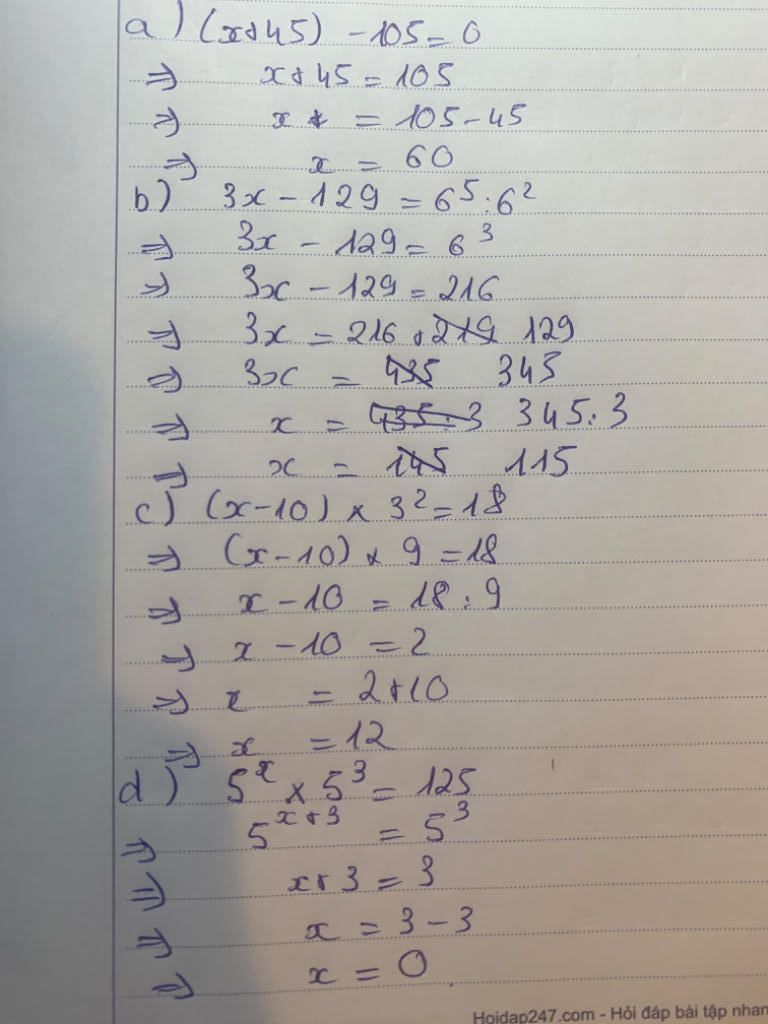 a) (x+45) - 105 = 0
=> x + 45 = 105
=> x = 105 - 45
=> x = 60
b) 3x - 129 = 6⁵ : 6²
=> 3x - 129 = 6³
=> 3x - 129 = 216
=> 3x = 216 + 219 129
=> 3x = 435 345
=> x = 435 : 3 345 : 3
=> x = 145 115
c) (x-10) × 3² = 18
=> (x-10) × 9 = 18
=> x - 10 = 18 : 9
=> x - 10 = 2
=> x = 2 + 10
=> x = 12
d) 5ˣ × 5³ = 125
=> 5ˣ⁺³ = 5³
=> x + 3 = 3
=> x = 3 - 3
=> x = 0
Hoidap247.com - Hỏi đáp bài tập nhan